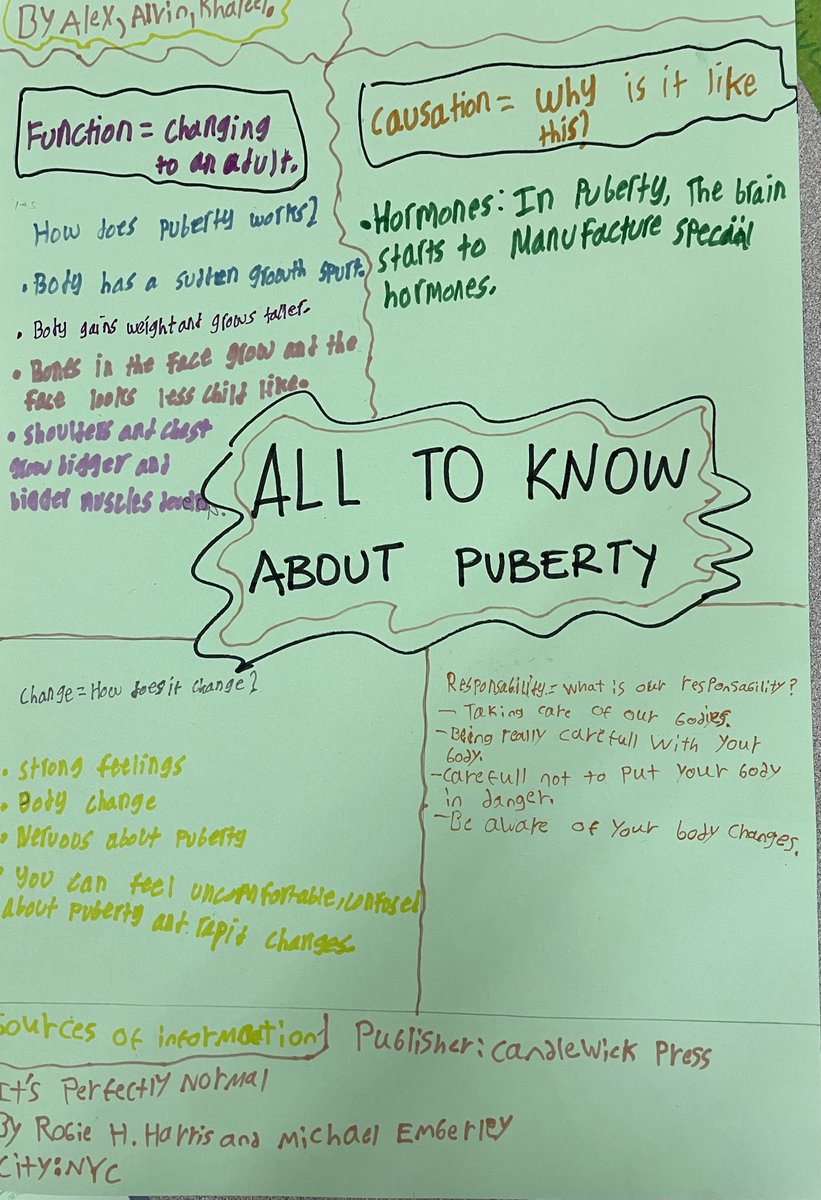 By Alex, Alvin, Khaleel.
Function = changing
to an adult.
How does puberty works?
• Body has a sudden growth spurt.
• Body gains weight and grows taller.
• Bones in the face grow and the
face looks less child like.
• Shoulders and chest
grow bigger and
bigger muscles develop.
Causation = Why is it like
this?
• Hormones: In Puberty, The brain
starts to Manufacture special
hormones.
ALL TO KNOW
ABOUT PUBERTY
Change = How does it change?
• Strong feelings
• Body change
• Nervous about puberty
• You can feel uncomfortable, confused
about puberty and rapid changes.
Responsability = What is our responsability?
- Taking care of our bodies.
- Being really carefull with your
body.
- Carefull not to put your body
in danger.
- Be aware of your body changes.
Sources of information
Publisher: Candlewick Press
It's Perfectly Normal
By Robie H. Harris and Michael Emberley
City: NYC